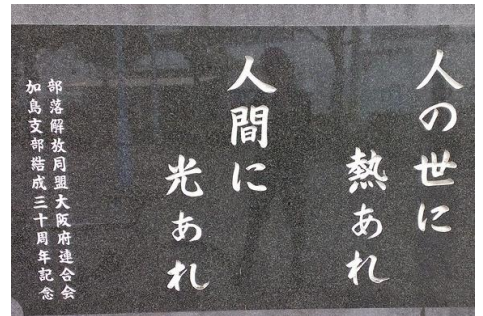 人の世に
熱あれ
人間に
光あれ
部落解放同盟大阪府連合会
加島支部結成三十周年記念